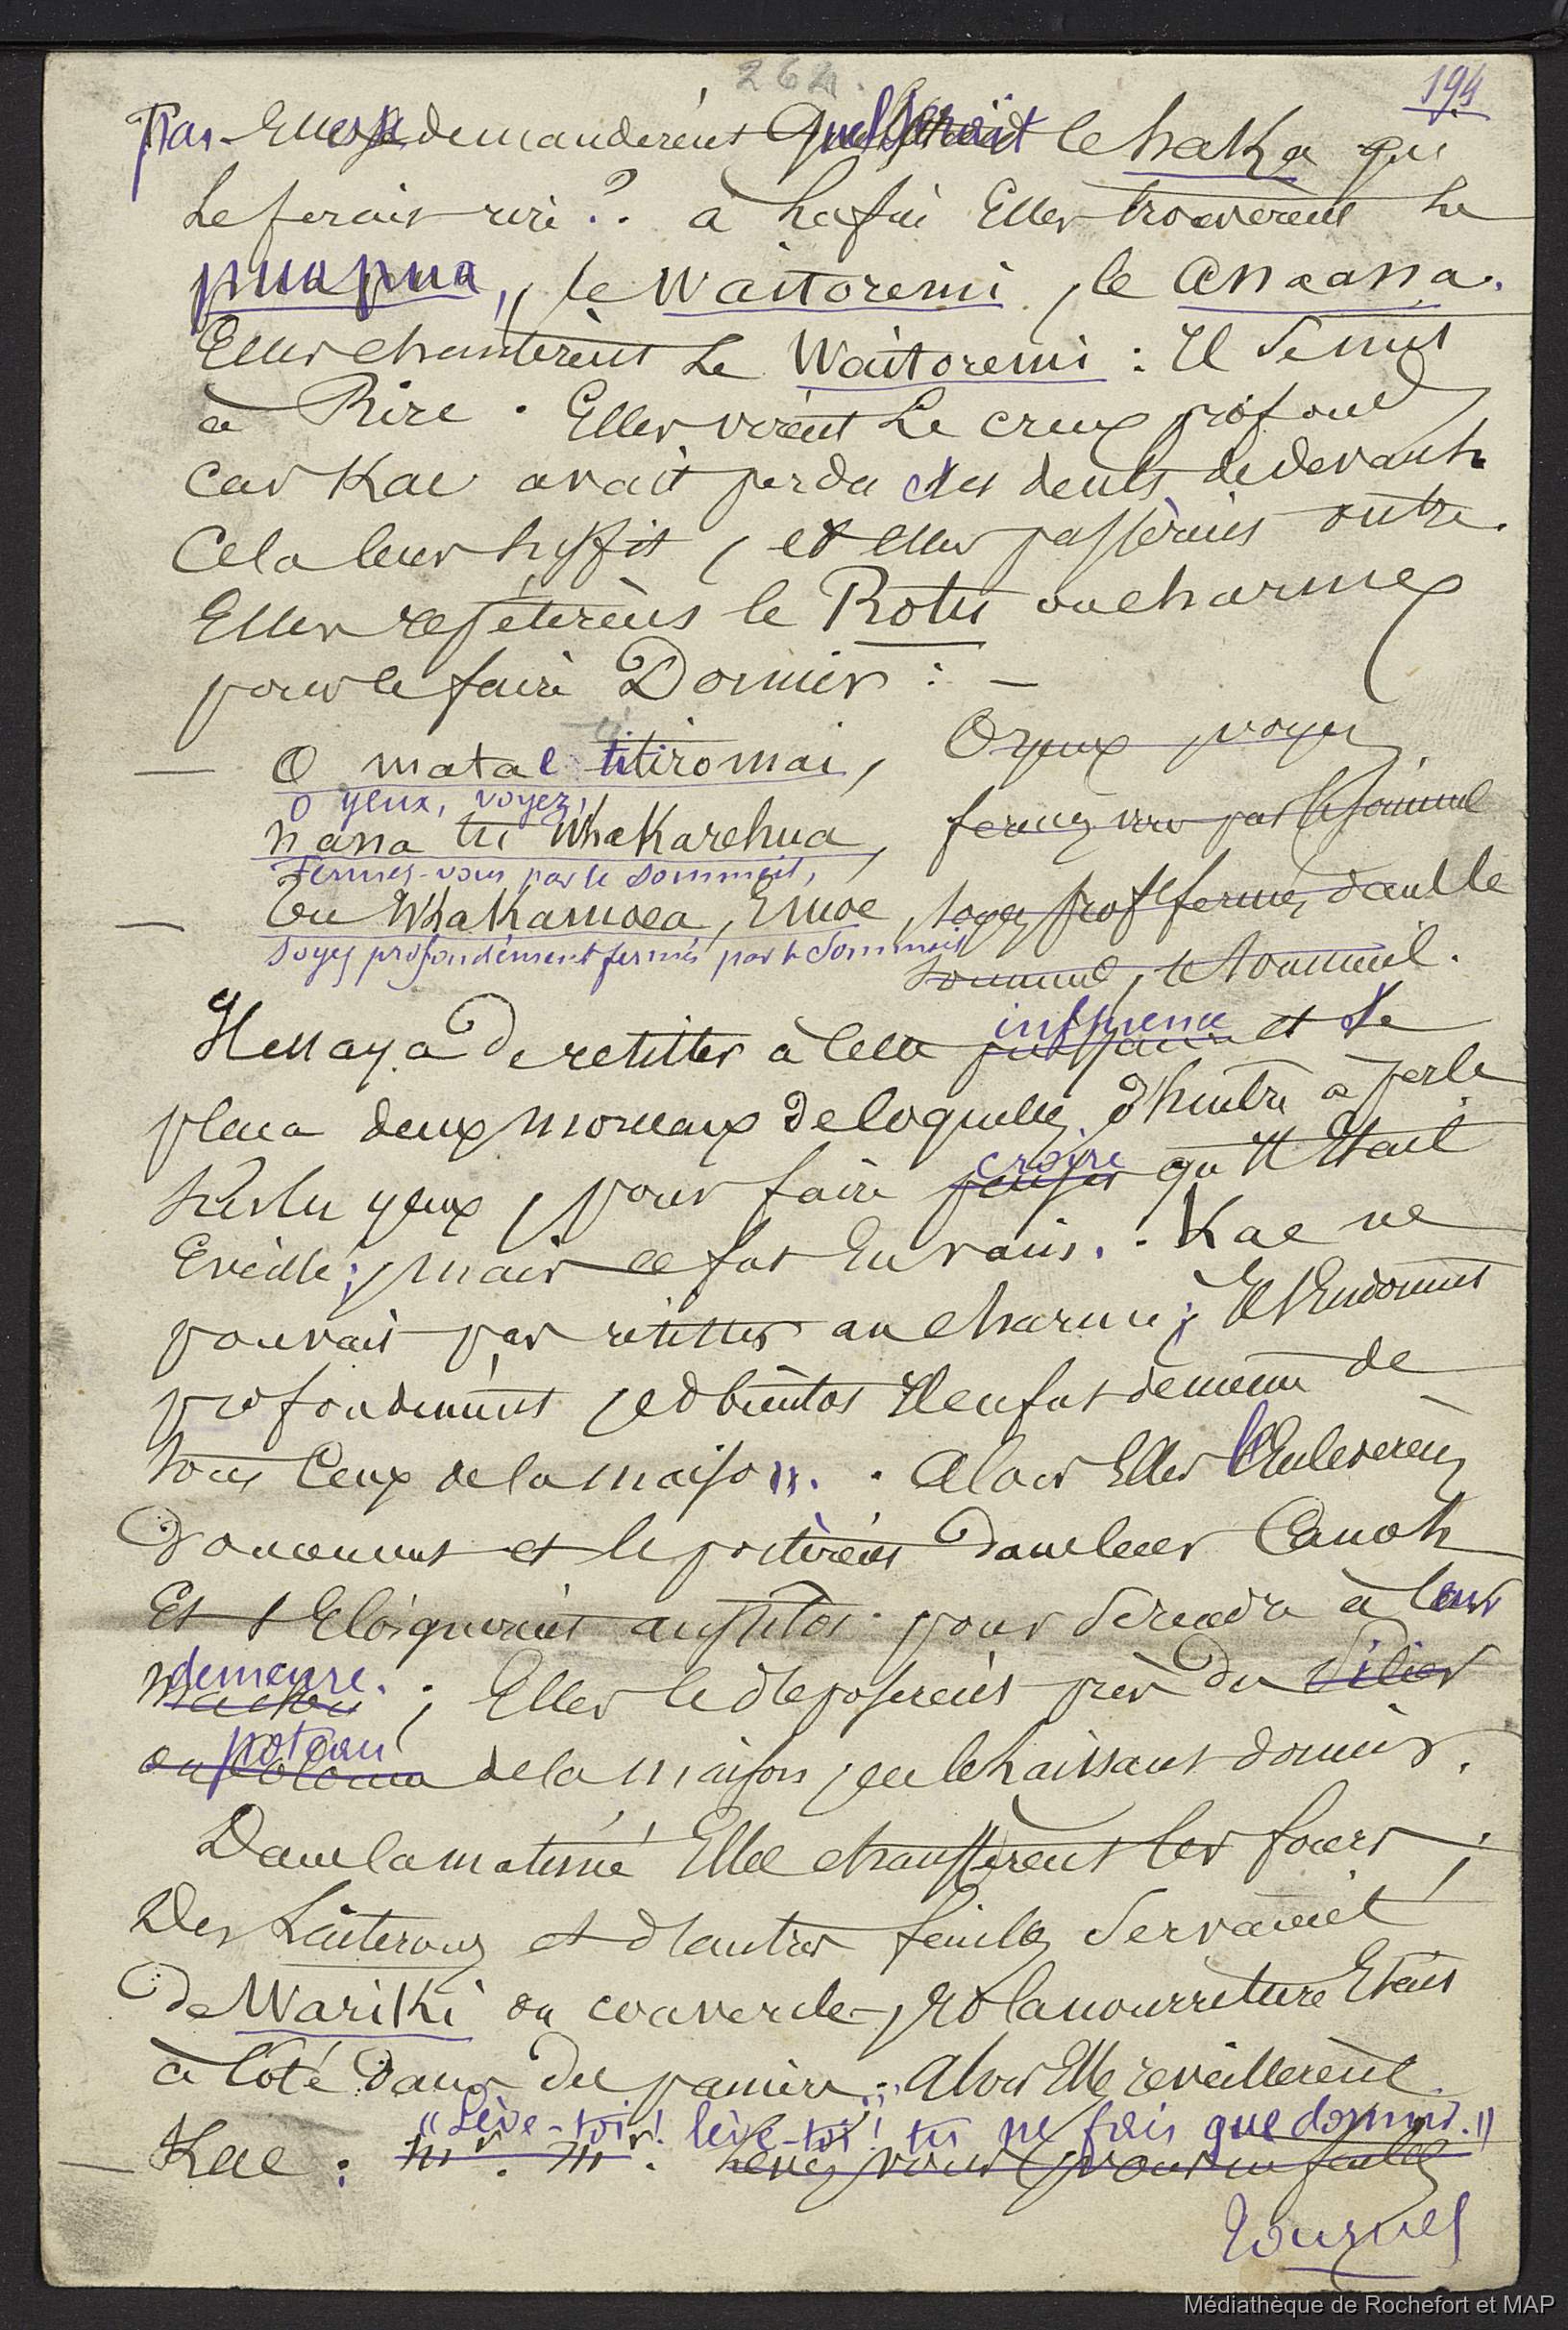 264.
194
pas. Elles se demandèrent quel serait le haka qui
le ferait rire ?. à la fin Elles trouverent le
puapua, le Waitoremi, le Anaana.
Elles chantèrent Le Waitoremi : Il se mit
à Rire. Elles virent Le creux profond
car Kae avait perdu des dents de devant.
Cela leur suffit, et elles passèrent outre.
Elles repétèrent le Rotu ou charme
pour le faire Dormir : —
— O mata e titiromai, O yeux voyez,
O yeux, voyez,
nana tu Whakarehua, fermez vous par le sommeil
Fermez-vous par le sommeil,
— Tu Whakamoea, Emoe, soyez proft fermés dans le
Soyez profondément fermés par le sommeil
sommeil, le sommeil.
Il essaya De resister à cette influence et se
plaça deux morceaux De coquilles d'huitre à perle
sur les yeux, pour faire croire qu'il Etait
Eveillé; mais ce fut En vain. Kae ne
pouvait pas resister au charme; Il s'Endormit
profondement, et bientot Il en fut de meme de
tous Ceux de la maison. Alors Elles l'Enleverent
Doucement et le portèrent Dans leur Canot
Et s'Eloignerent aussitot pour Se rendre à leur
demeure. ; Elles le deposerent près du Pilier
poteau de la maison, en le laissant dormir.
Dans la matinée Elles chaufferent les fours ;
Des Linterons et d'autres feuilles Servaient
De Wariki ou couvercle, et la nourriture Etait
à Coté Dans des paniers; Alors Elles reveillerent
"Lève-toi ! lève-toi ! tu ne fais que dormir."
— Kae : Mr. Mr. Levez vous
Tournez
Médiathèque de Rochefort et MAP